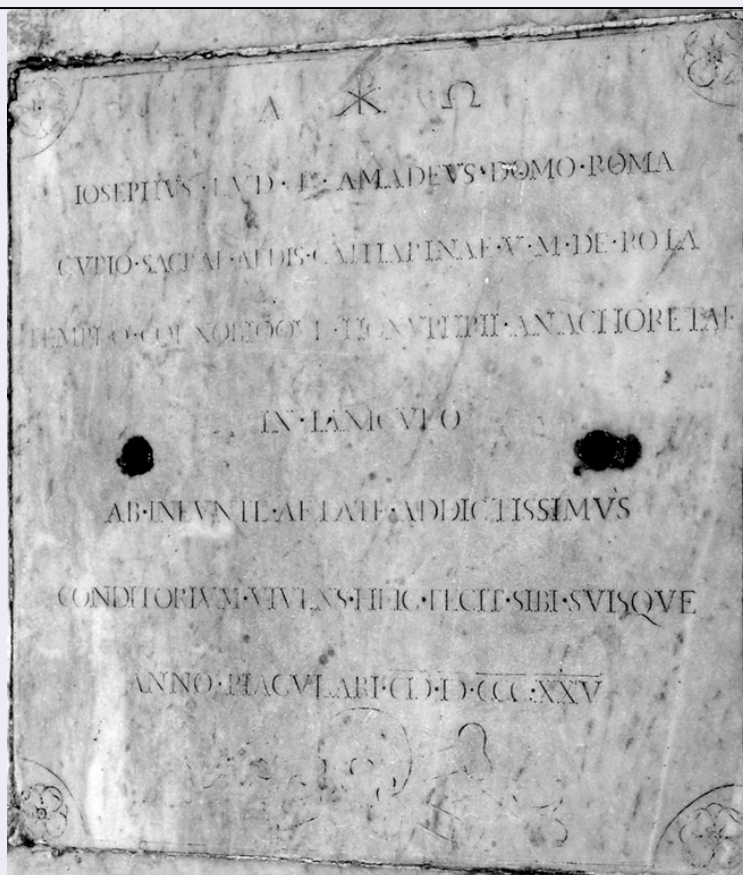 Α ☧ Ω
IOSEPHVS · LVD · F · AMADEVS · DOMO · ROMA
CVRIO · SACRAE · AEDIS · CATHARINAE · V · M · DE · ROTA
TEMPLO · COENOBIOQVE · HONVPHRII · ANACHORETAE
IN · IANICVLO
AB · INEVNTE · AETATE · ADDICTISSIMVS
CONDITORIVM · VIVENS · HEIC · FECIT · SIBI · SVISQVE
ANNO · PIACVLARI · CIↃ · D · CCC · XXV